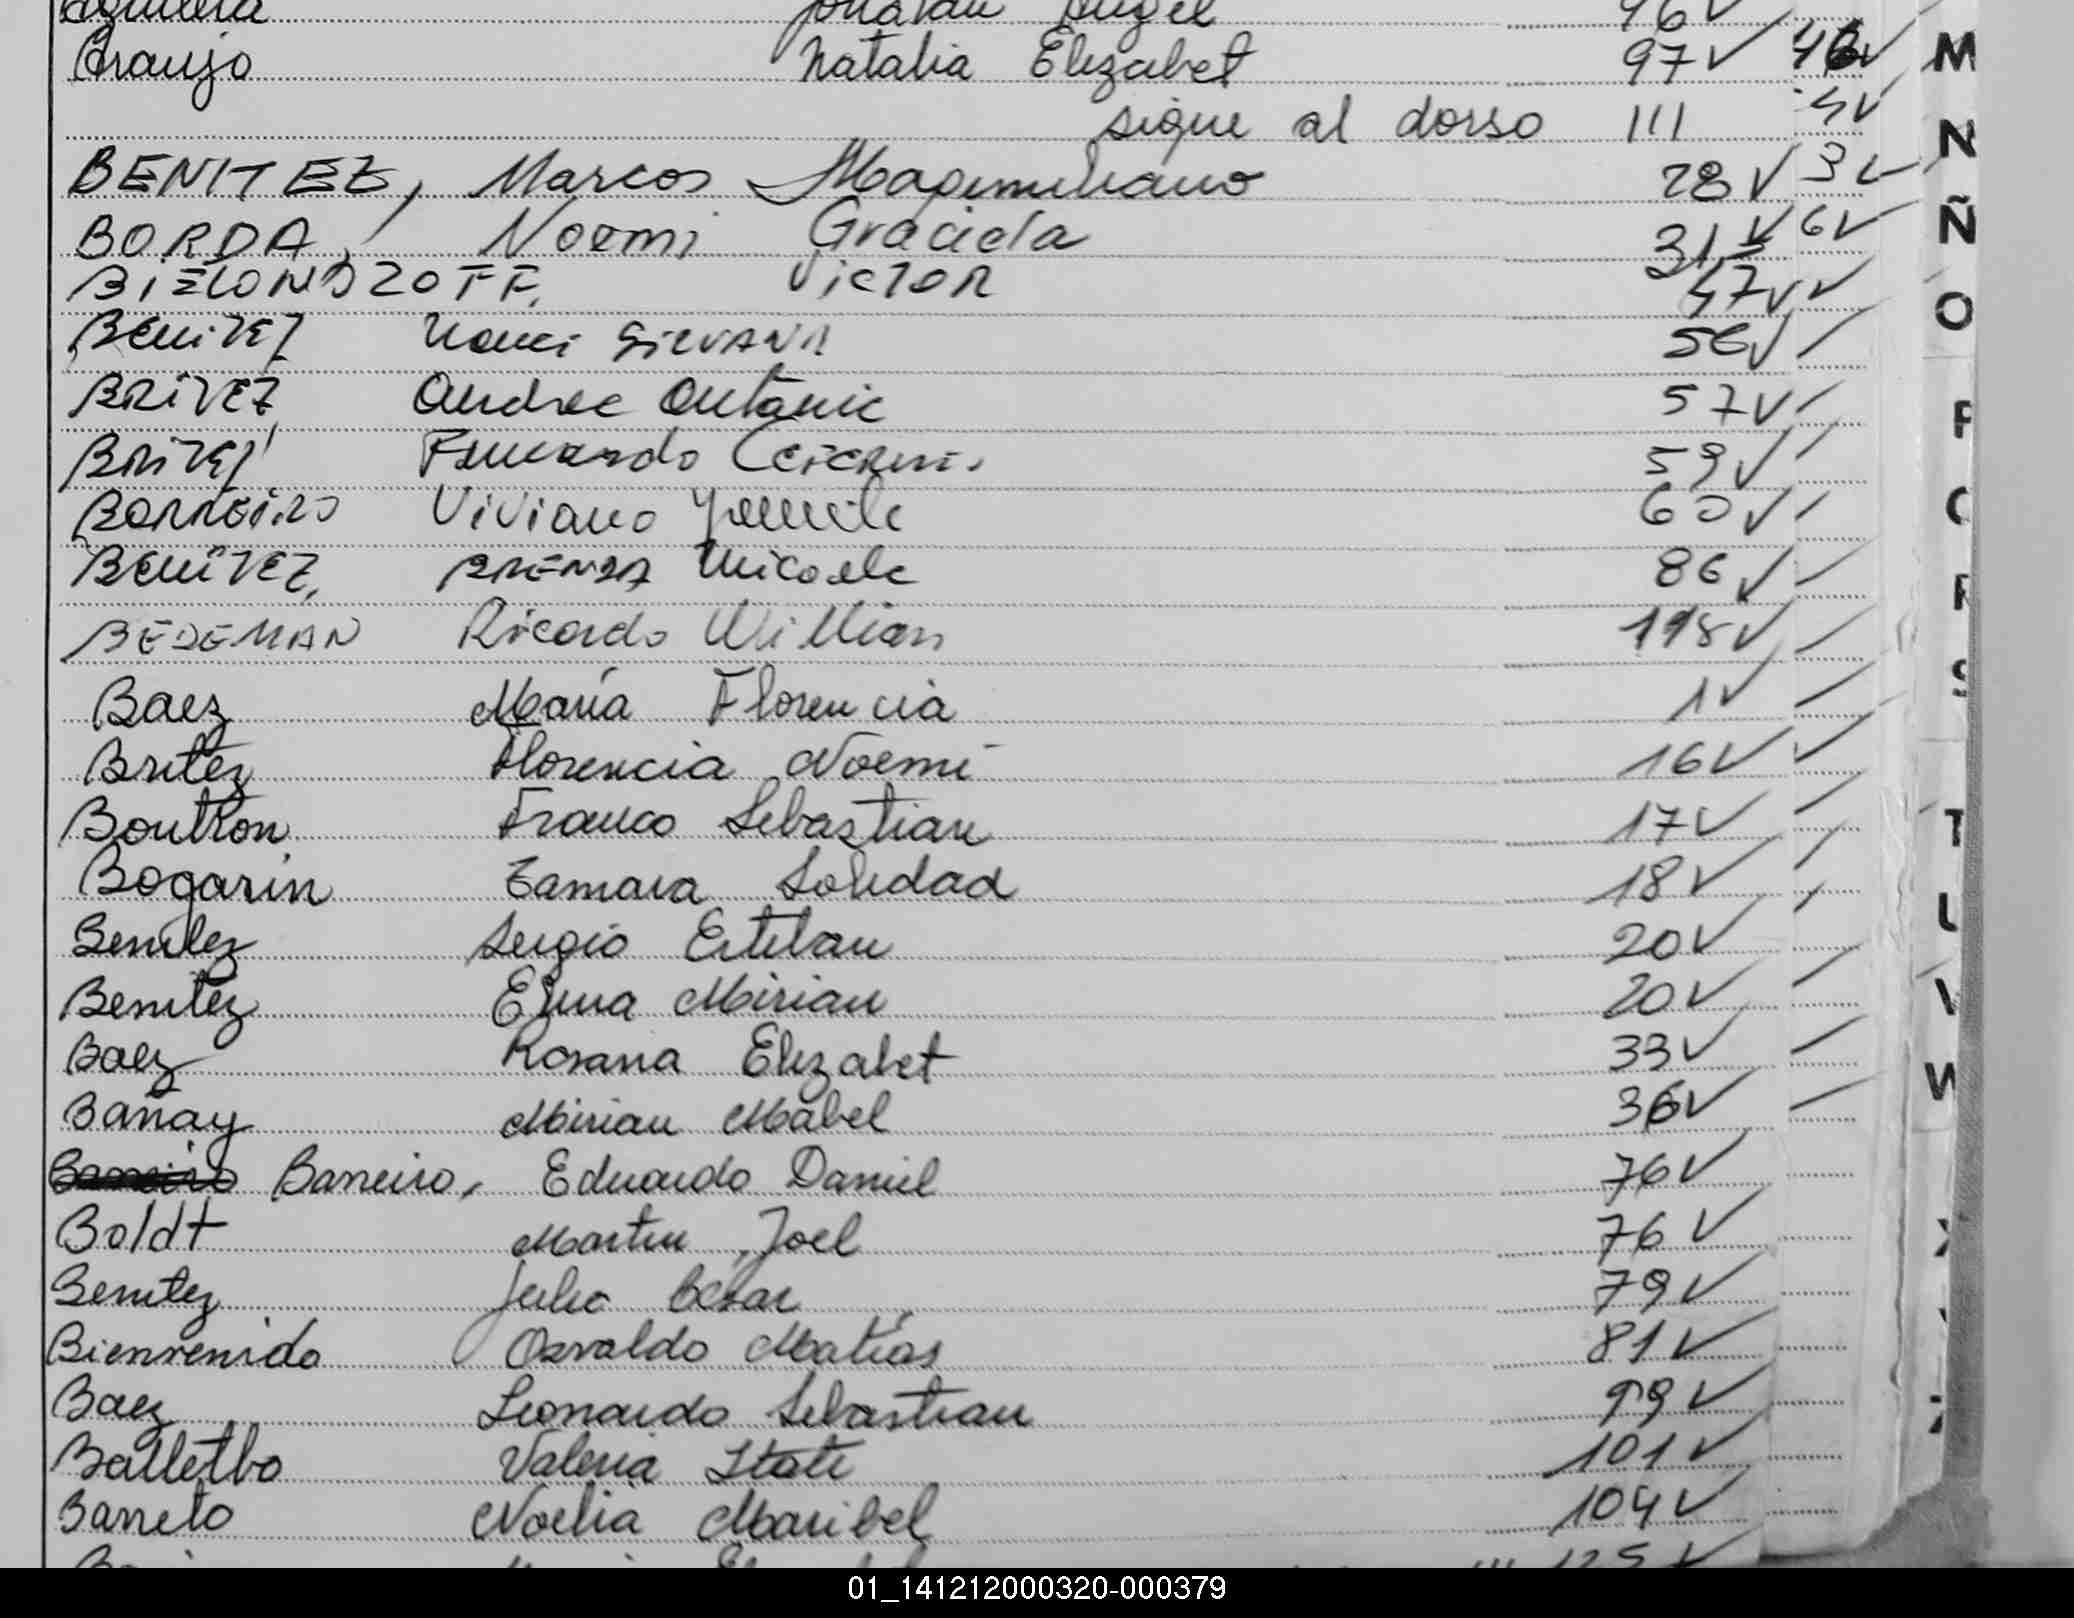 Aguilera Jonatan Angel 96 ✓
Araujo Natalia Elizabet 97 ✓
sigue al dorso III
BENITEZ, Marcos Maximiliano 28 ✓ 3 ✓
BORDA, Noemi Graciela 31 ✓ 6 ✓
BIELONDZOFF, VICTOR 47 ✓ ✓
BENITEZ SILVANA 56 ✓
BRITEZ Antonio 57 ✓
BRITEZ Fernando 59 ✓
BORREIRO Viviana 60 ✓
BENITEZ, BRENDA Micaela 86 ✓
BEDEMAN Ricardo Willian 118 ✓
Baez María Florencia 1 ✓
Britez Florencia Noemi 16 ✓ ✓
Boutron Franco Sebastian 17 ✓
Bogarin Tamara Soledad 18 ✓
Benitez Sergio Esteban 20 ✓
Benitez Elma Mirian 20 ✓
Baez Rosana Elizabet 33 ✓
Bañay Mirian Mabel 36 ✓
Barreiro, Eduardo Daniel 76 ✓
Boldt Martin Joel 76 ✓
Benitez Julio Cesar 79 ✓
Bienvenido Osvaldo Matías 81 ✓
Baez Leonardo Sebastian 99 ✓
Balletbo Valeria Itati 101 ✓
Barreto Noelia Maribel 104 ✓
M
N
Ñ
O
P
Q
R
S
T
U
V
W
X
Y
Z
01_141212000320-000379